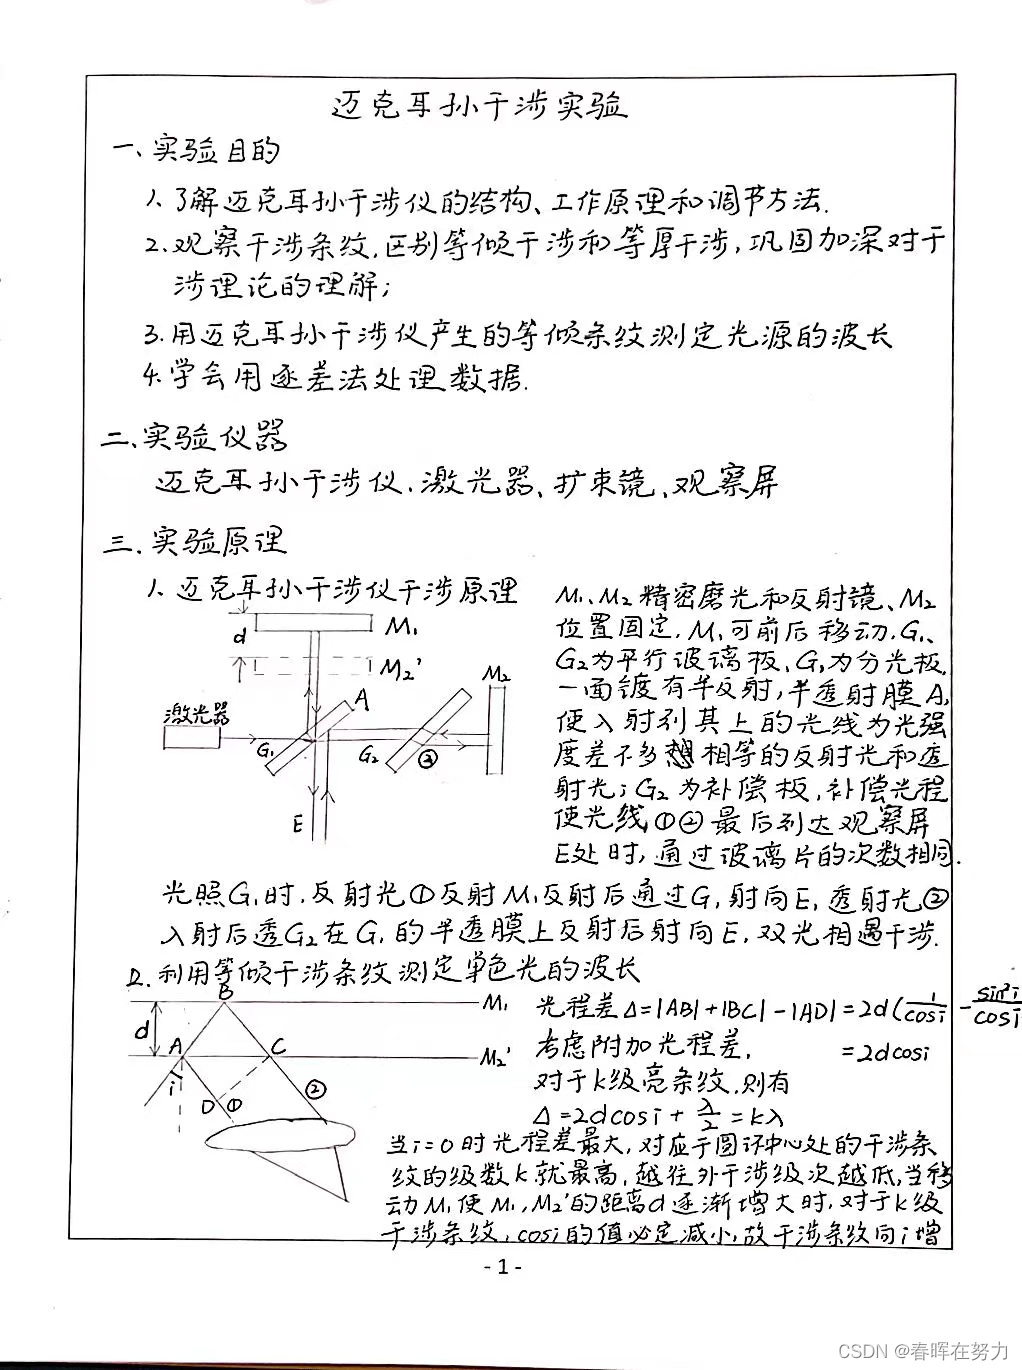 迈克耳孙干涉实验
一、实验目的
1. 了解迈克耳孙干涉仪的结构、工作原理和调节方法.
2. 观察干涉条纹,区别等倾干涉和等厚干涉,巩固加深对干
涉理论的理解;
3. 用迈克耳孙干涉仪产生的等倾条纹测定光源的波长
4. 学会用逐差法处理数据.
二、实验仪器
迈克耳孙干涉仪.激光器、扩束镜、观察屏
三.实验原理
1. 迈克耳孙干涉仪干涉原理
d
M₁
M₂'
M₂
A
激光器
G₁
G₂
②
E
M₁、M₂精密磨光和反射镜、M₂
位置固定.M₁可前后移动.G₁、
G₂为平行玻璃板、G₁为分光板.
一面镀有半反射,半透射膜A,
使入射到其上的光线为光强
度差不多相等的反射光和透
射光;G₂为补偿板,补偿光程
使光线①②最后到达观察屏
E处时,通过玻璃片的次数相同.
光照G₁时.反射光①反射M₁反射后通过G₁射向E,透射光②
入射后透G₂在G₁的半透膜上反射后射向E,双光相遇干涉.
2. 利用等倾干涉条纹测定单色光的波长
B
M₁
d
A
C
M₂'
i
D
①
②
光程差Δ=|AB|+|BC|-|AD|=2d(1/cosi - sin²i/cosi
=2dcosi
考虑附加光程差,
对于k级亮条纹.则有
Δ=2dcosi+λ/2=kλ
当i=0时光程差最大,对应于圆环中心处的干涉条
纹的级数k就最高,越往外干涉级次越低,当移
动M₁使M₁,M₂'的距离d逐渐增大时,对于k级
干涉条纹,cosi的值必定减小,故干涉条纹向i增
- 1 -
CSDN @春晖在努力